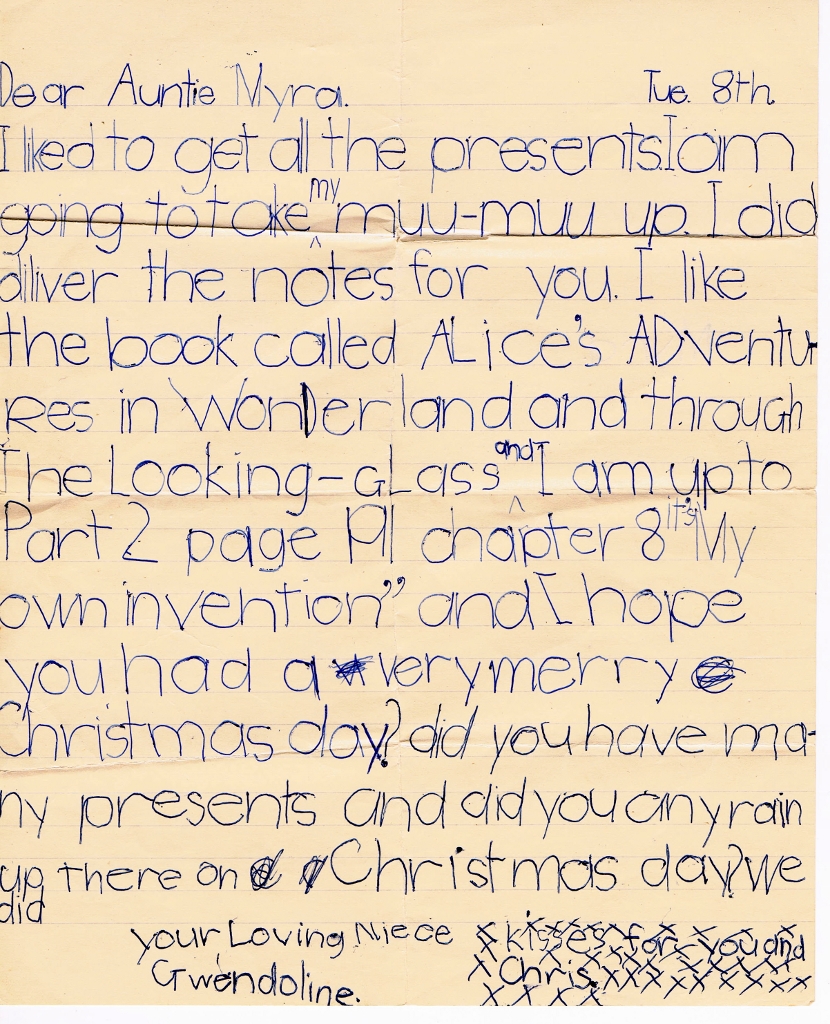 Dear Auntie Myra. Tue. 8th.
I liked to get all the presents I am
going to take my muu-muu up. I did
diliver the notes for you. I like
the book called ALice's ADventu
Res in WonDerland and through
The Looking-GLass and I am up to
Part 2 page 191 chapter 8 it's "My
own invention" and I hope
you had a very merry
Christmas day? did you have ma-
ny presents and did you any rain
up there on Christmas day? We
did
your Loving Niece
Gwendoline.
x kisses for you and
x Chris. x x x x x x x x
x x x x